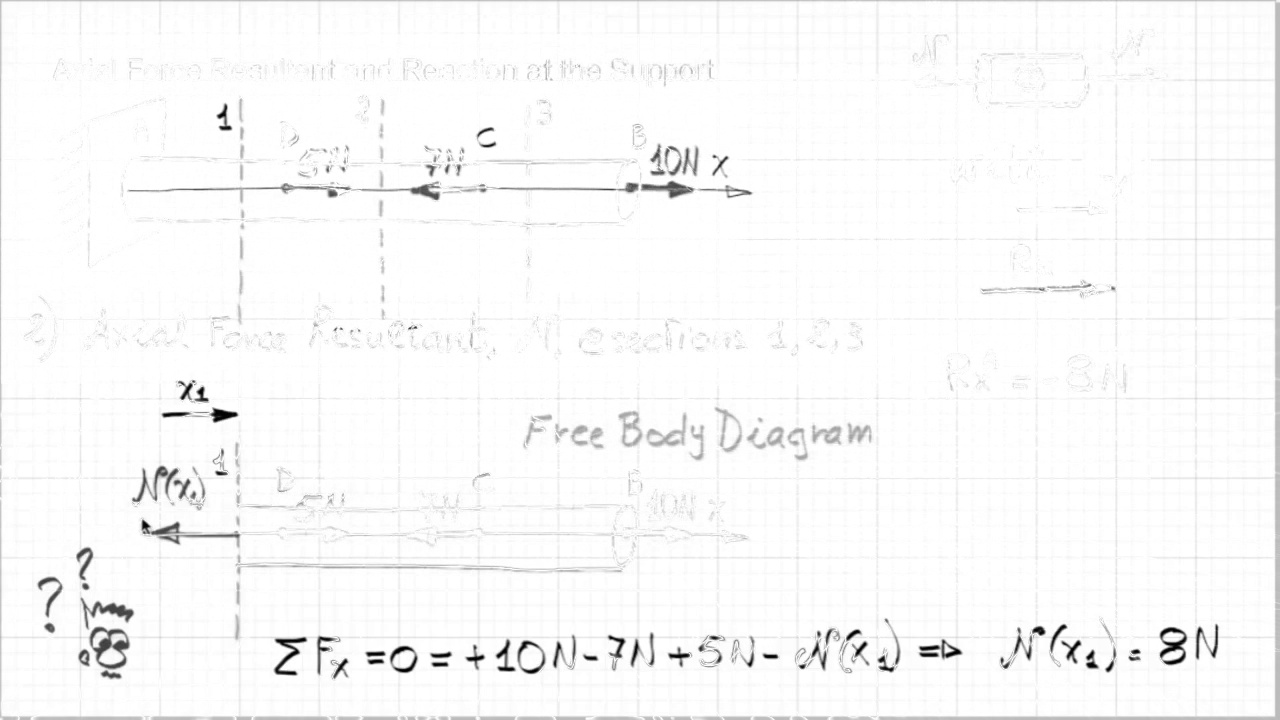 Axial Force Resultant and Reaction at the Support
N N
1 2 3
A D 5N 7N C B 10N x
Rx
2) Axial Force Resultant, N, @ sections 1, 2, 3
Rx^A = -8N
x1
Free Body Diagram
N(x1) 1 D 5N 7N C B 10N x
? ?
ΣFx = 0 = +10N - 7N + 5N - N(x1) => N(x1) = 8N